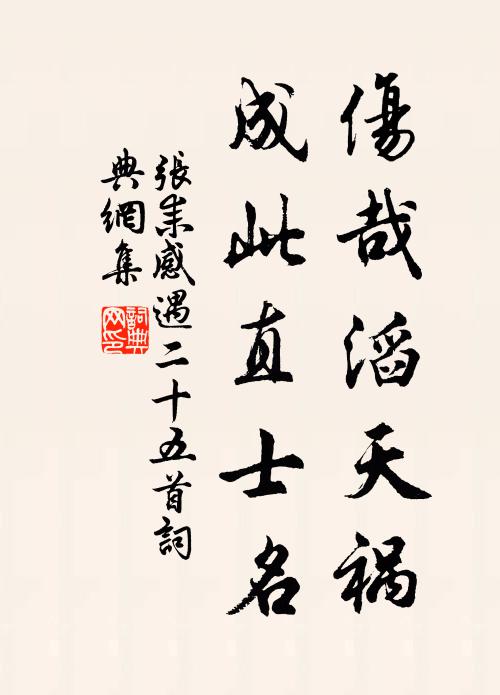 傷哉滔天禍
成此直士名
張耒感遇二十五首詞
典網集
詞典网印